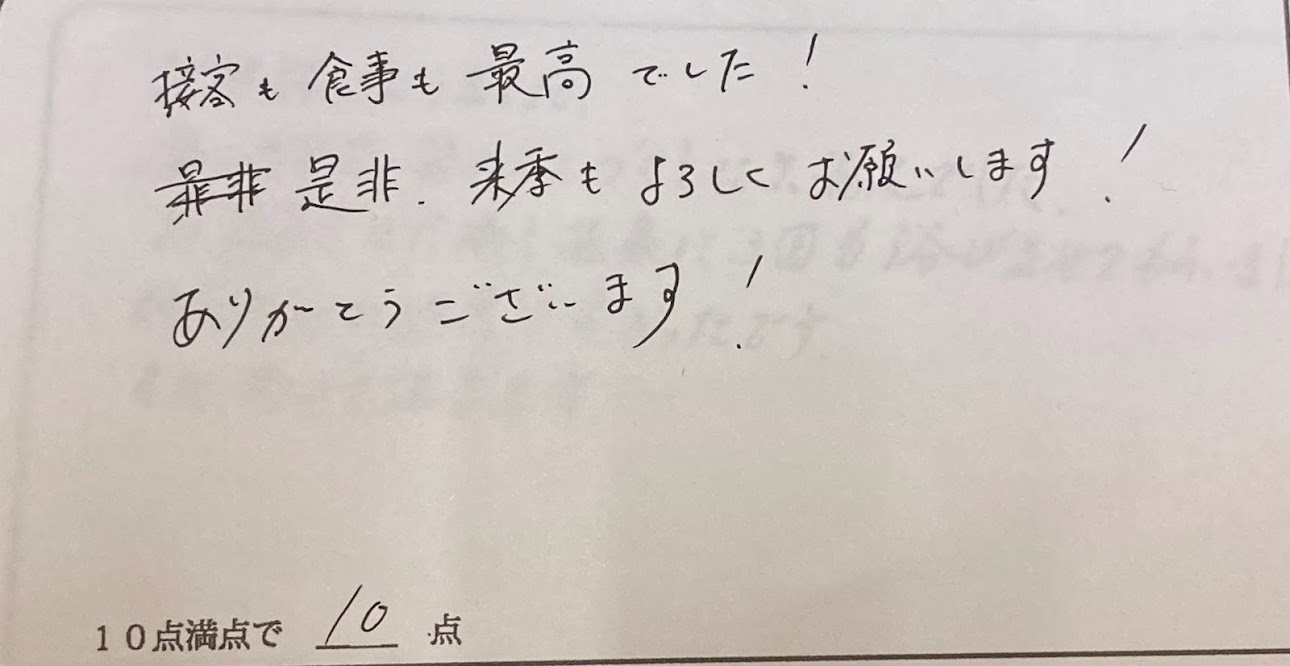 接客も食事も最高でした!
是非.来季もよろしくお願いします!
ありがとうございます!
10点満点で 10 点